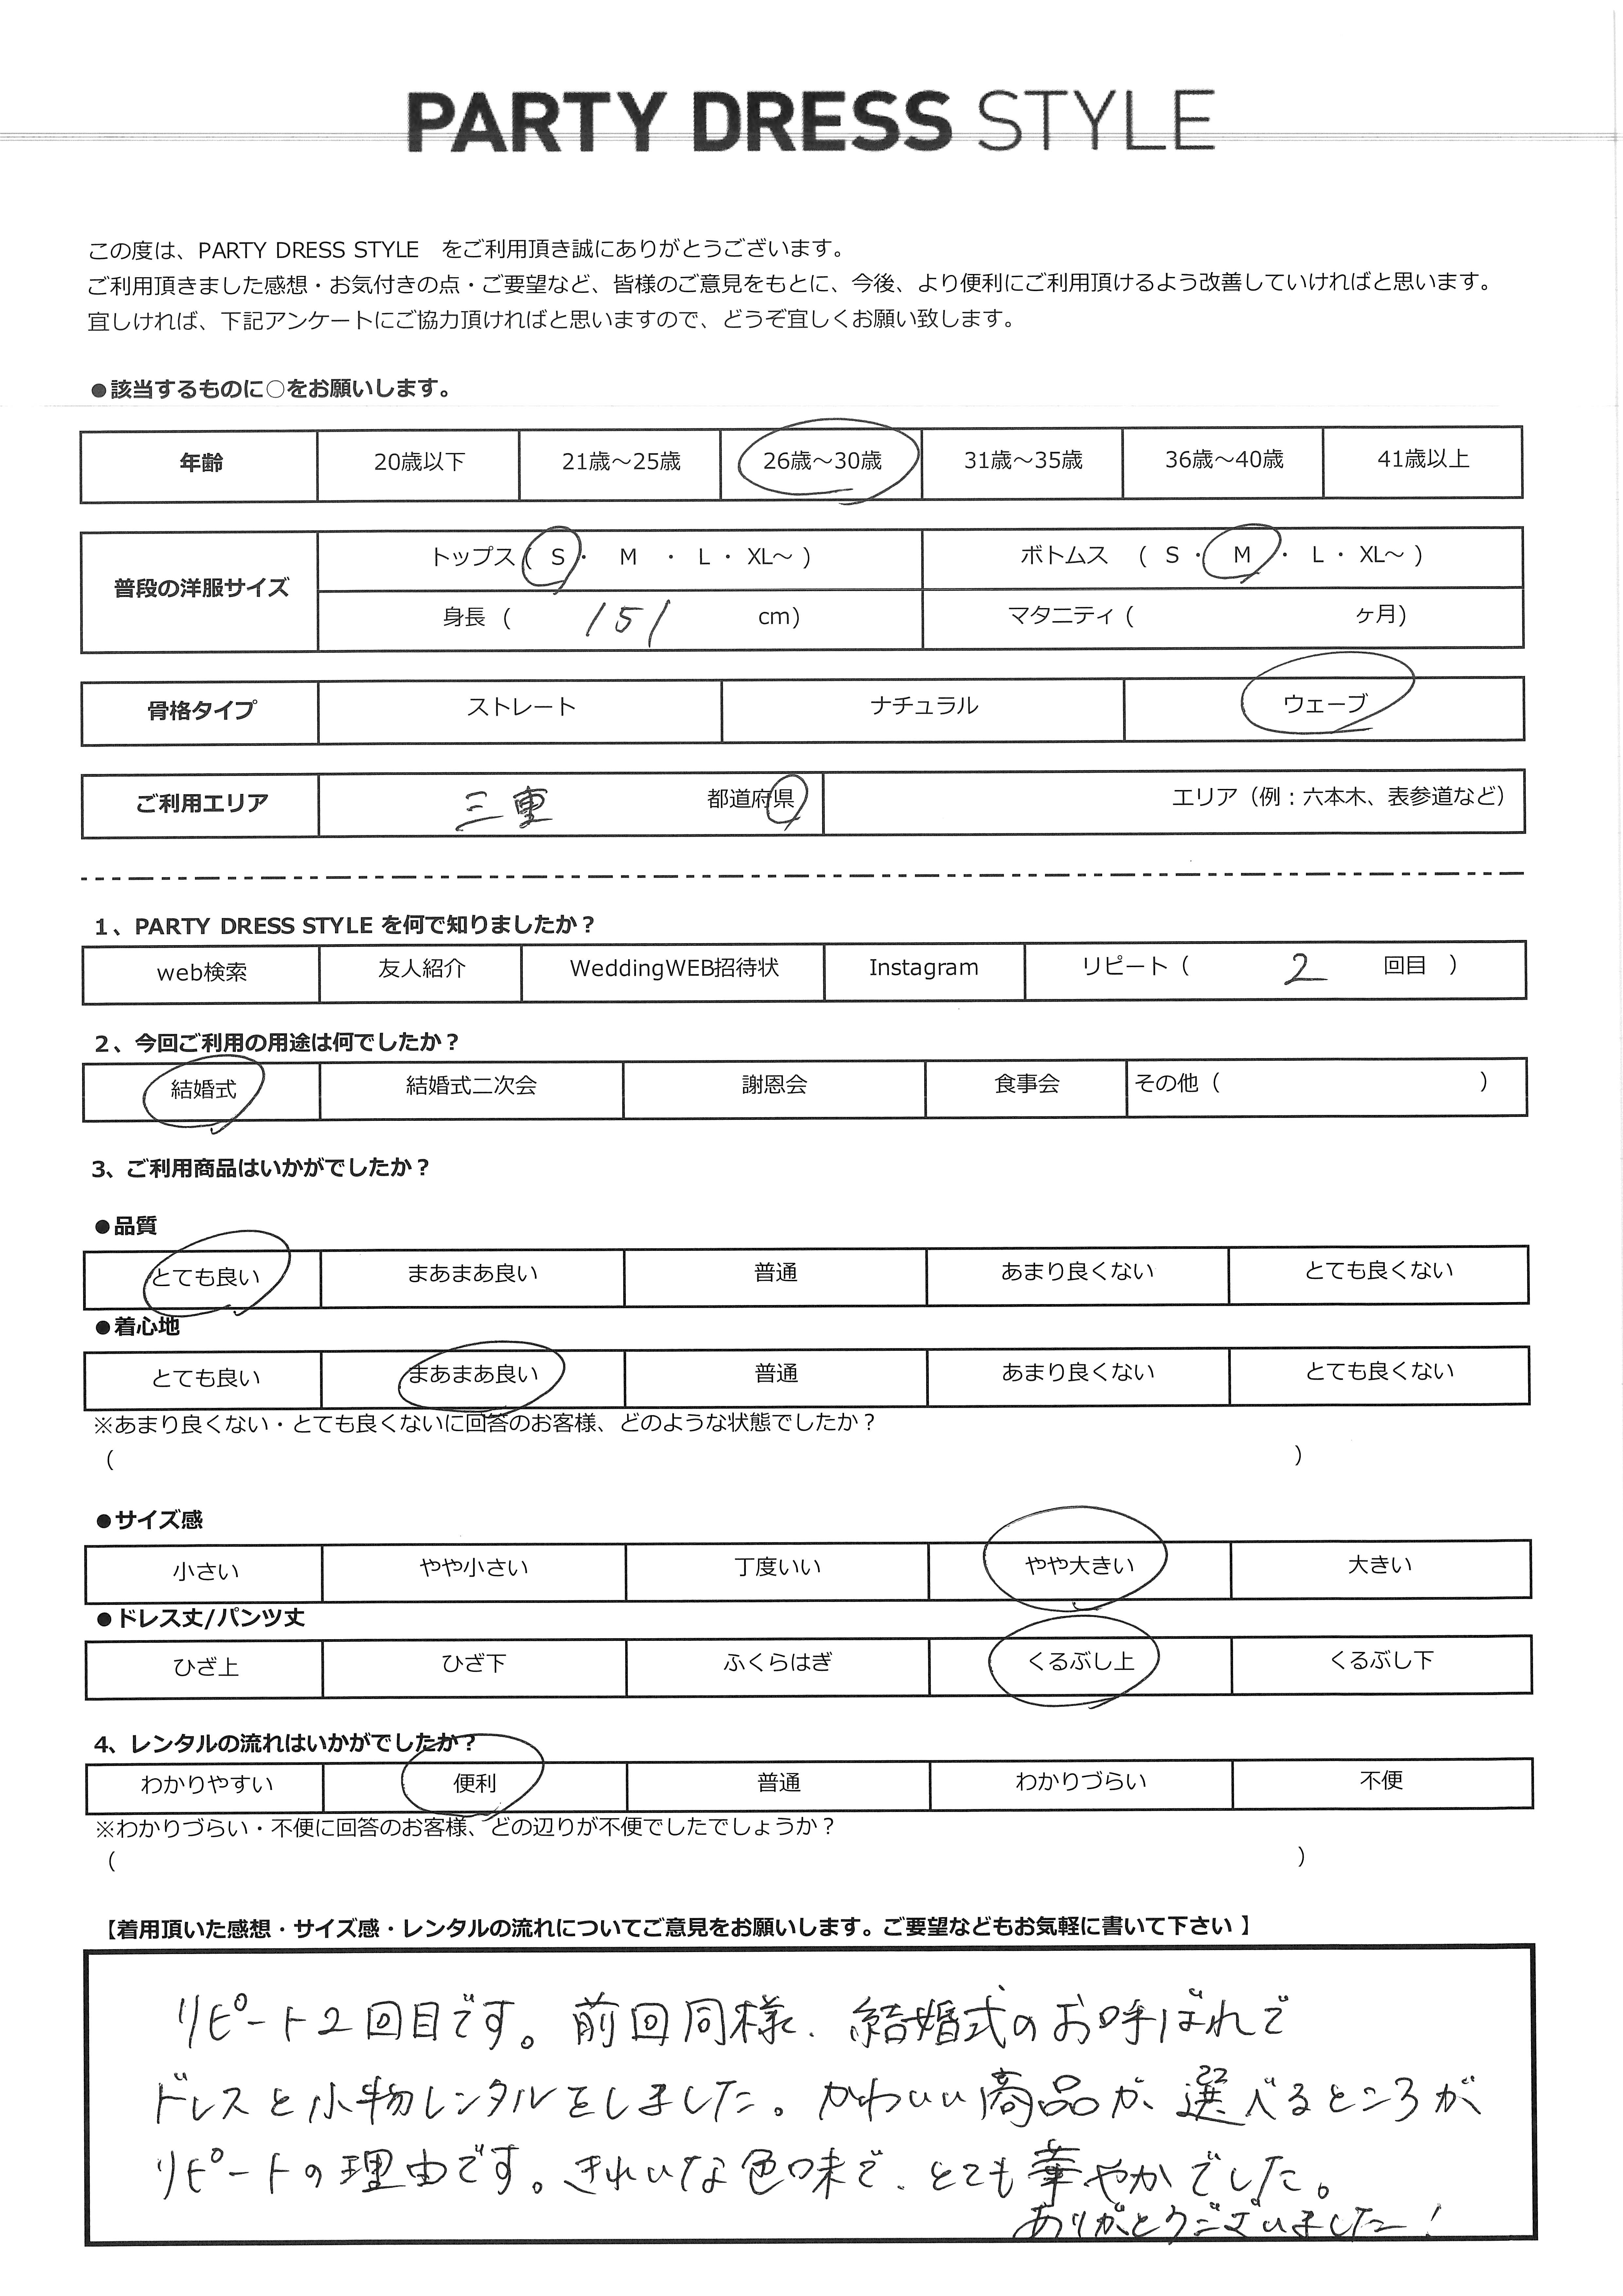 PARTY DRESS STYLE
この度は、PARTY DRESS STYLE　をご利用頂き誠にありがとうございます。
ご利用頂きました感想・お気付きの点・ご要望など、皆様のご意見をもとに、今後、より便利にご利用頂けるよう改善していければと思います。
宜しければ、下記アンケートにご協力頂ければと思いますので、どうぞ宜しくお願い致します。
●該当するものに○をお願いします。
年齢 20歳以下 21歳～25歳 26歳～30歳 31歳～35歳 36歳～40歳 41歳以上
普段の洋服サイズ トップス（ S ・ M ・ L ・ XL～ ） ボトムス （ S ・ M ・ L ・ XL～ ）
身長（ 151 cm） マタニティ（ ヶ月）
骨格タイプ ストレート ナチュラル ウェーブ
ご利用エリア 三重 都道府県 エリア（例：六本木、表参道など）
1、PARTY DRESS STYLE を何で知りましたか？
web検索 友人紹介 WeddingWEB招待状 Instagram リピート（ 2 回目 ）
2、今回ご利用の用途は何でしたか？
結婚式 結婚式二次会 謝恩会 食事会 その他（ ）
3、ご利用商品はいかがでしたか？
●品質
とても良い まあまあ良い 普通 あまり良くない とても良くない
●着心地
とても良い まあまあ良い 普通 あまり良くない とても良くない
※あまり良くない・とても良くないに回答のお客様、どのような状態でしたか？
（ ）
●サイズ感
小さい やや小さい 丁度いい やや大きい 大きい
●ドレス丈/パンツ丈
ひざ上 ひざ下 ふくらはぎ くるぶし上 くるぶし下
4、レンタルの流れはいかがでしたか？
わかりやすい 便利 普通 わかりづらい 不便
※わかりづらい・不便に回答のお客様、どの辺りが不便でしたでしょうか？
（ ）
【着用頂いた感想・サイズ感・レンタルの流れについてご意見をお願いします。ご要望などもお気軽に書いて下さい 】
リピート2回目です。前回同様、結婚式のお呼ばれで
ドレスと小物レンタルをしました。かわいい商品が選べるところが
リピートの理由です。きれいな色味で、とても華やかでした。
ありがとうございました！